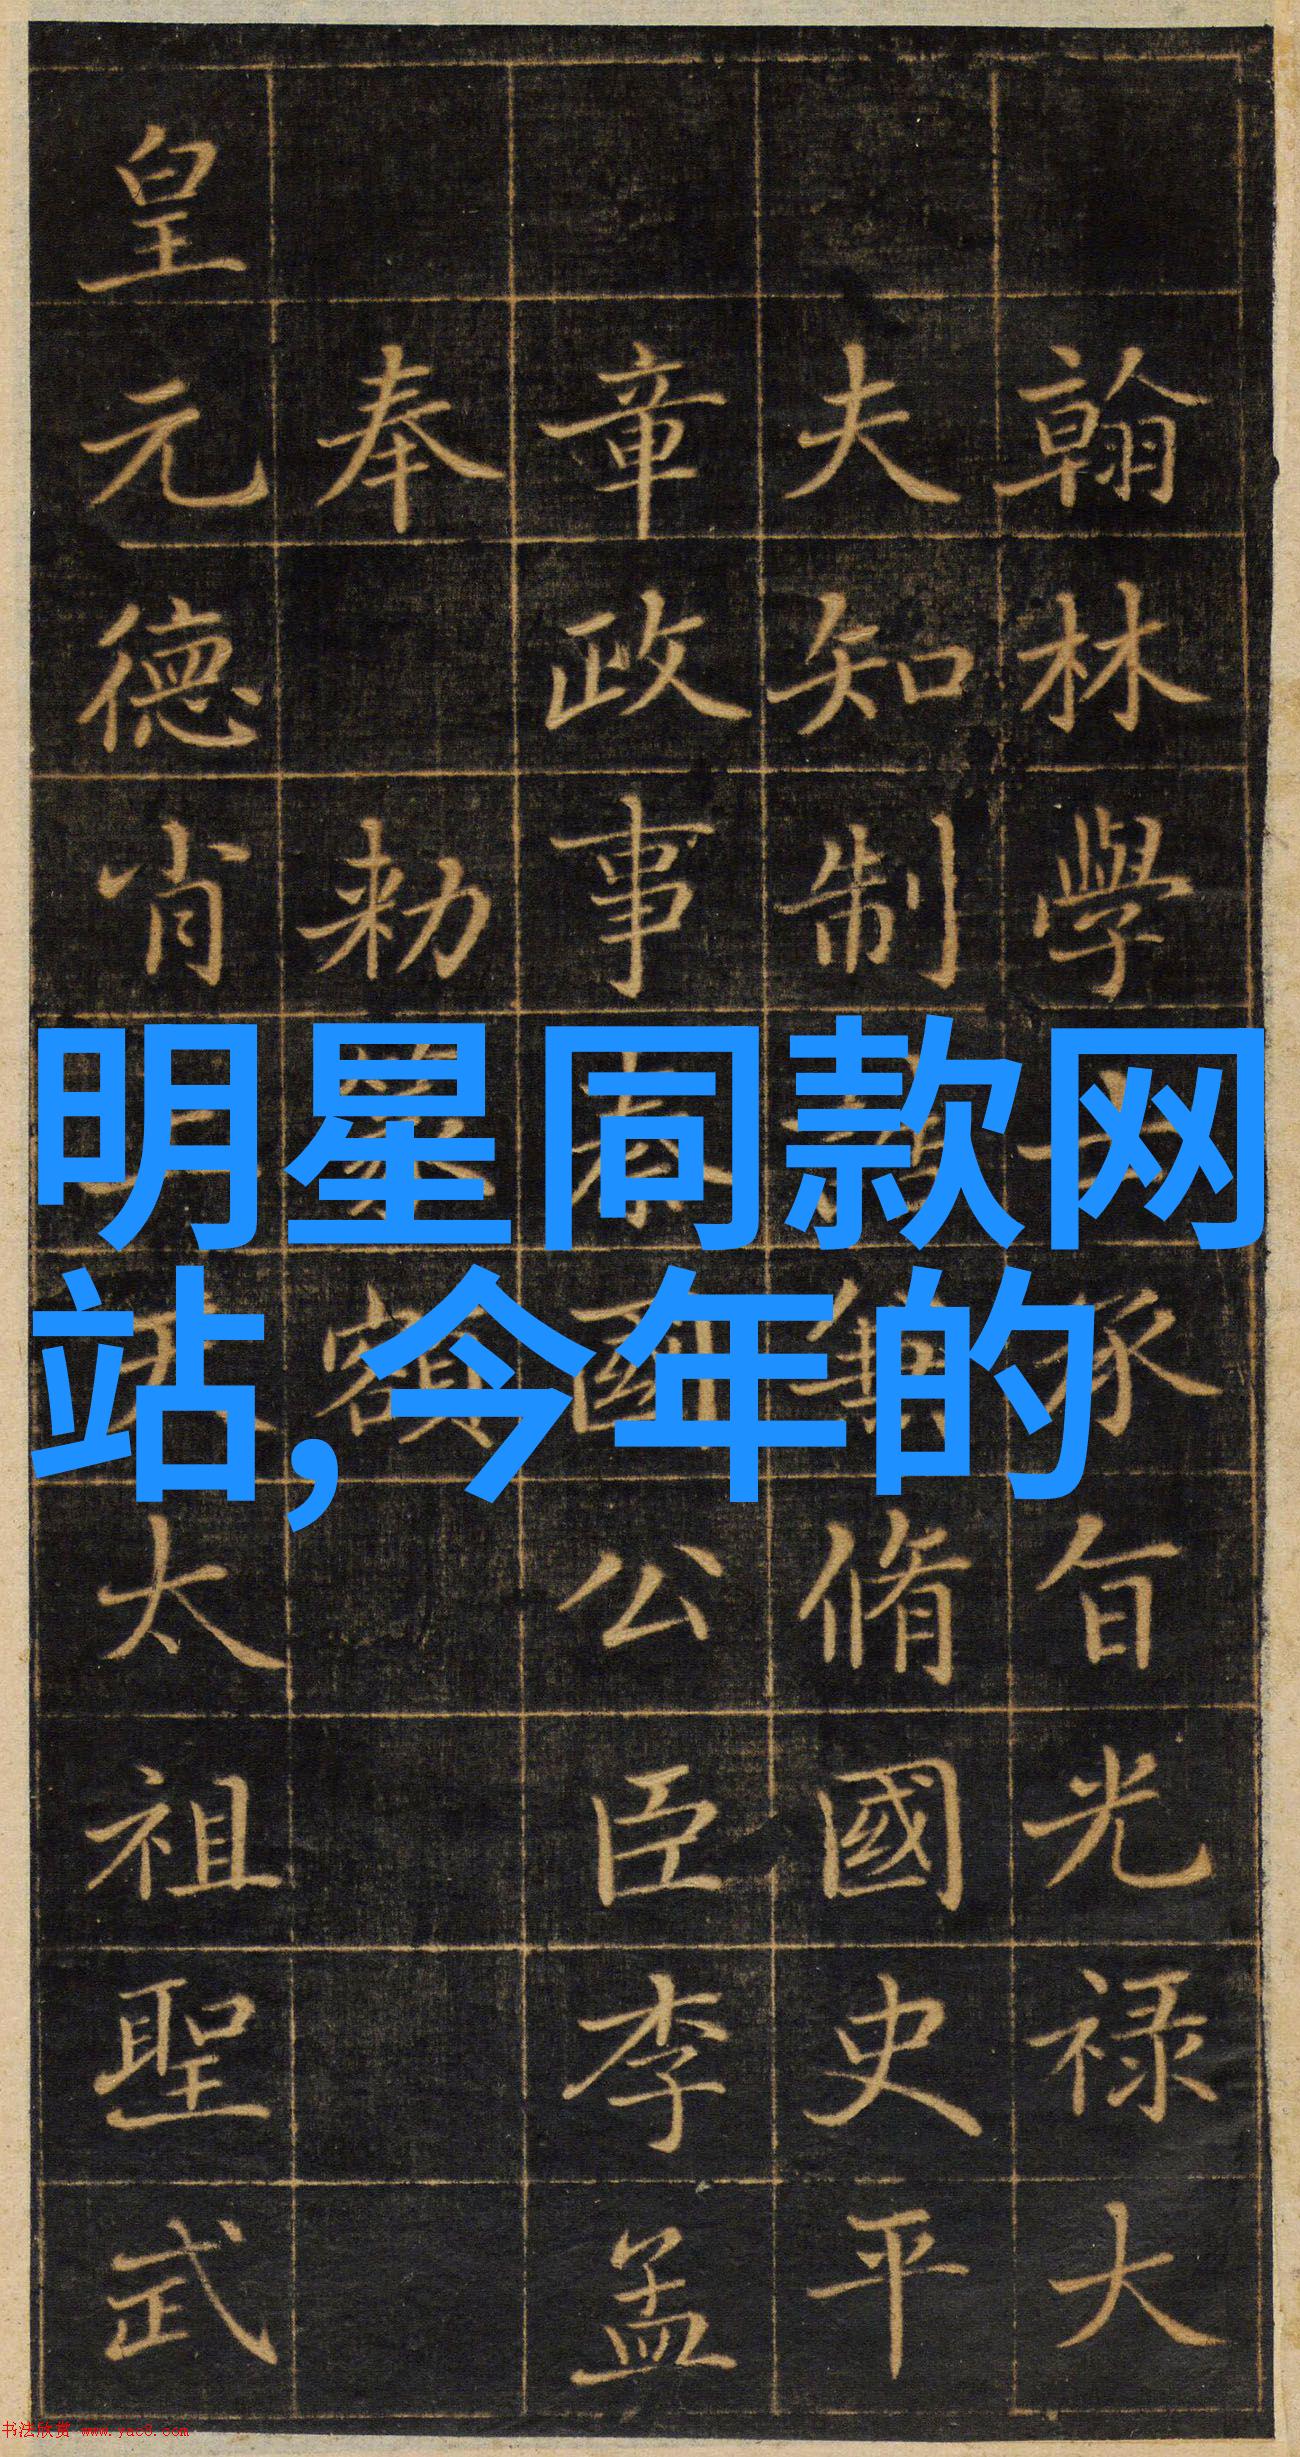 翰林學士承旨光禄大
夫知制誥兼脩國史平
章政事秦國公臣李孟
奉勅篆額
皇元德肖天太祖聖武
明星同款网
站,今年的
书法欣赏 www.yac8.com